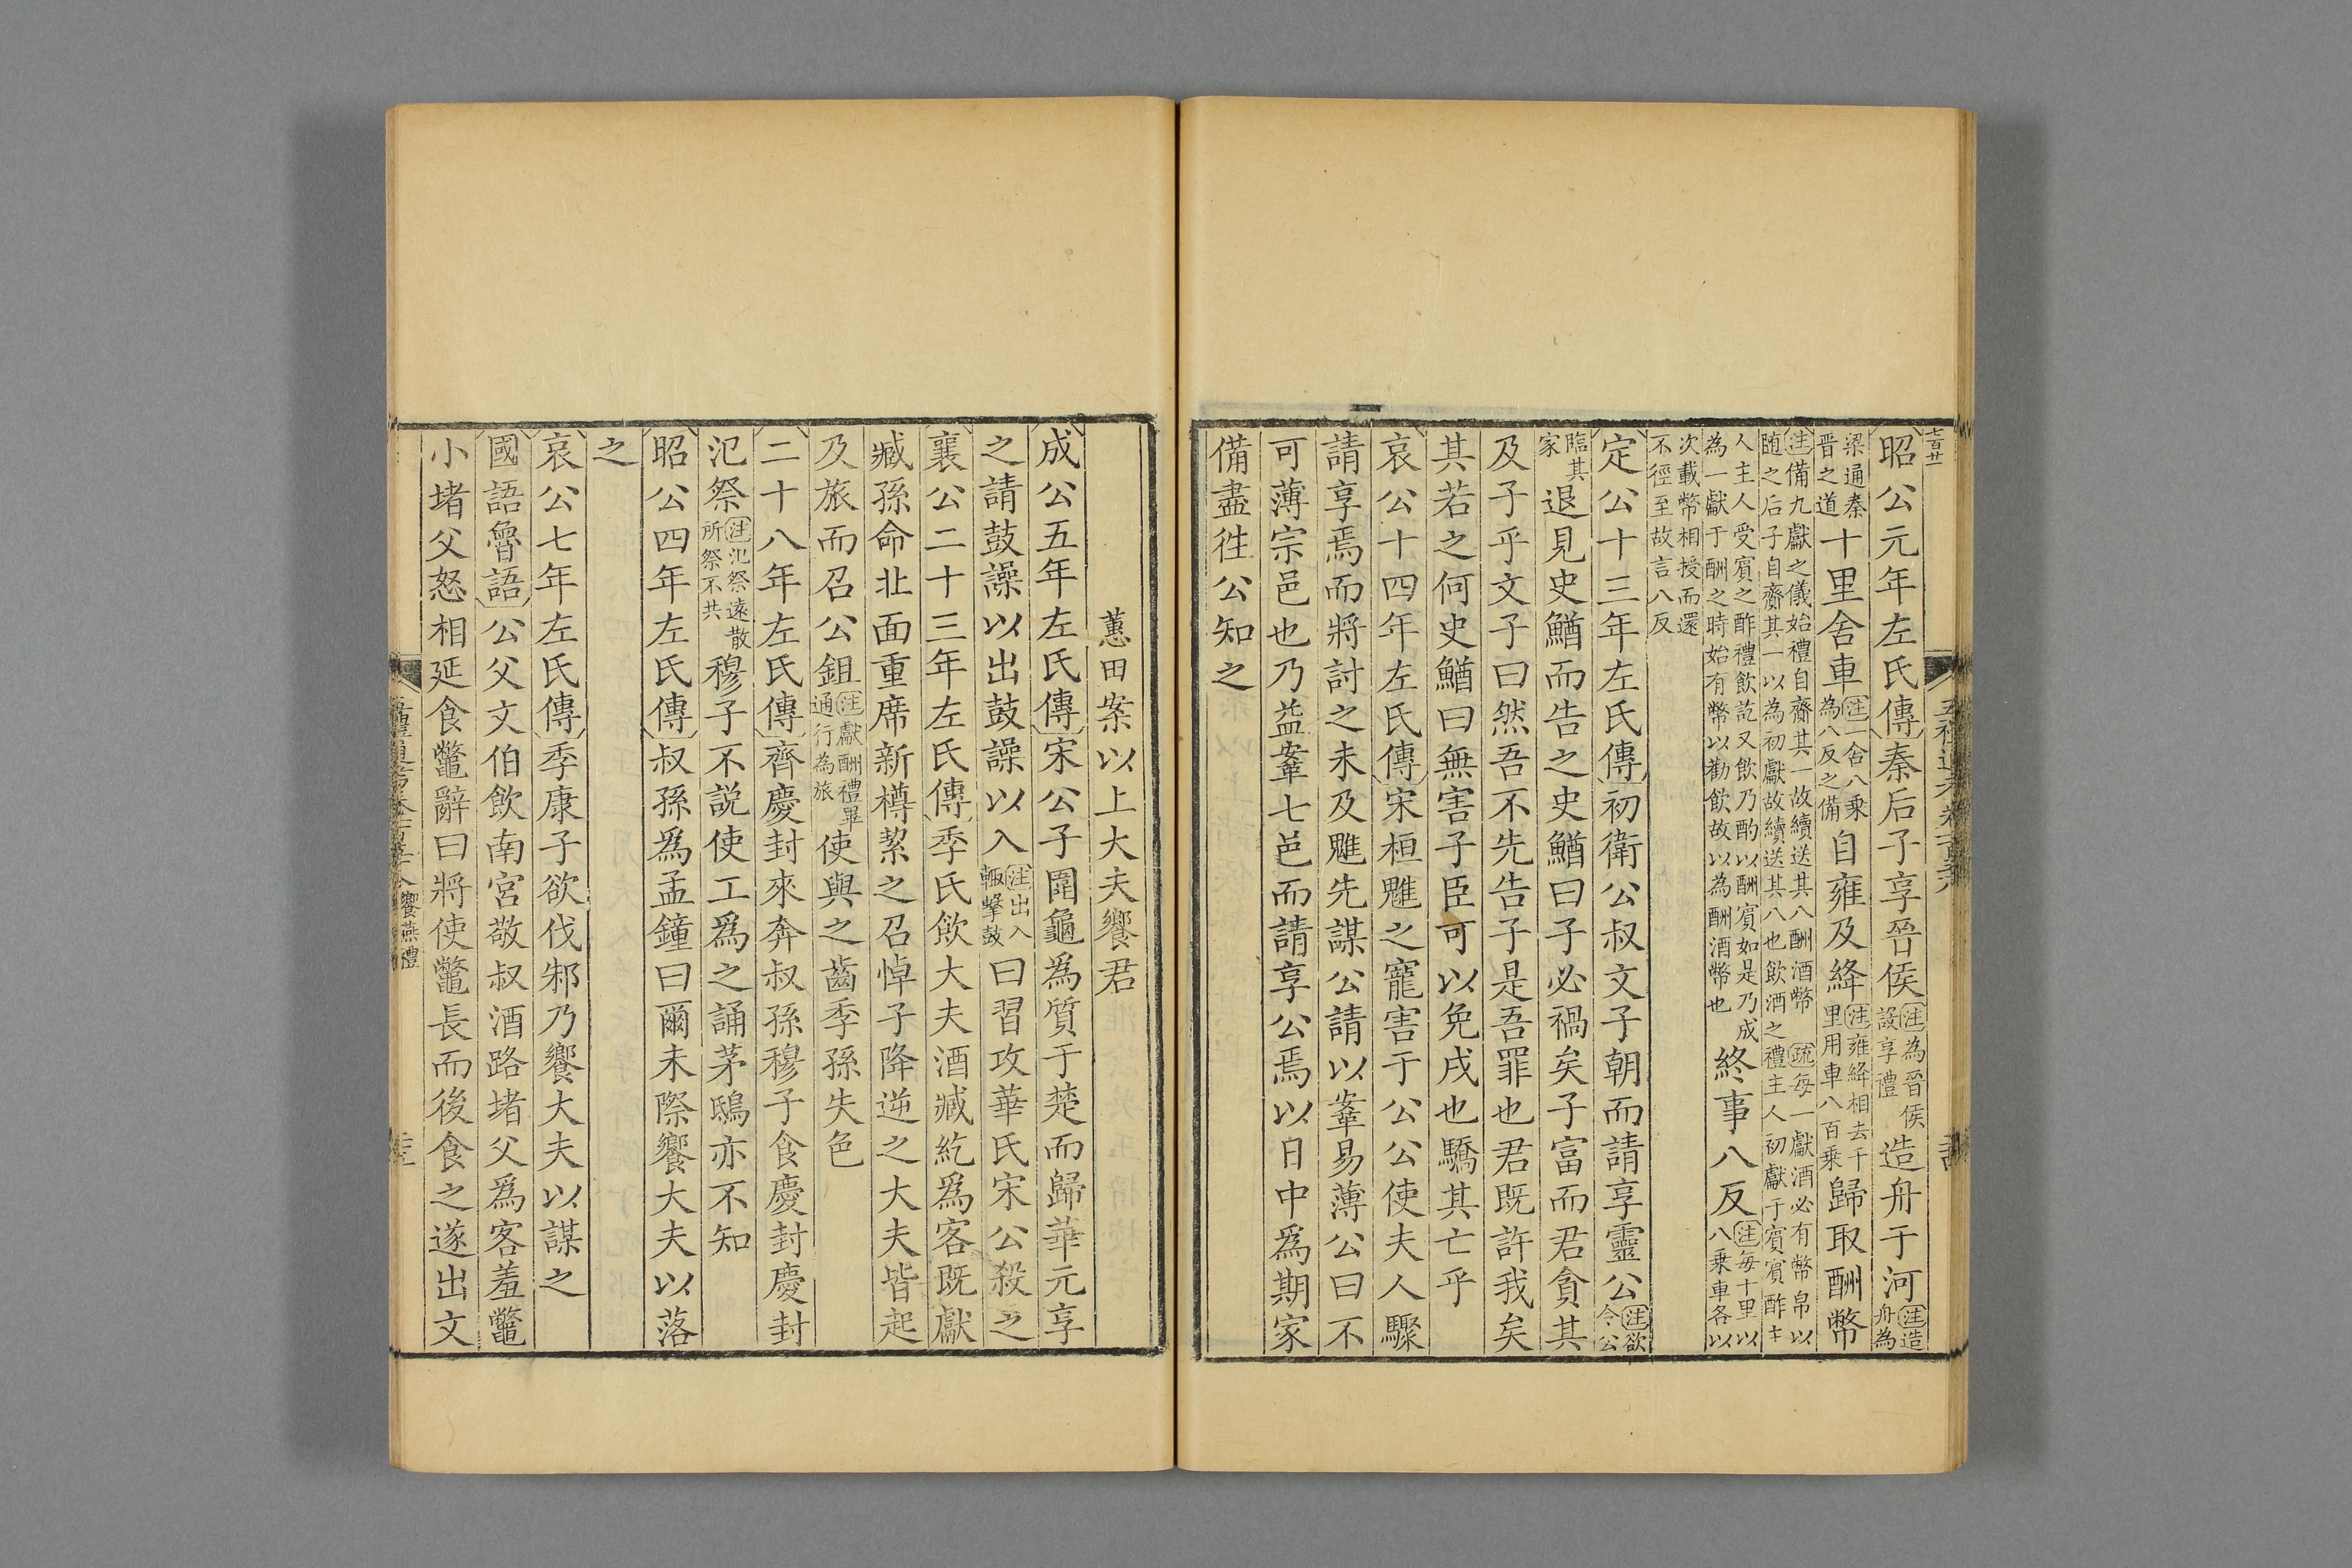 昭公元年左氏傳秦后子享晉侯注為晉侯設享禮造舟于河注造舟為
梁通秦晉之道十里舍車注一舍八乘為八反之備自雍及絳注雍絳相去千里用車八百乘歸取酬幣
注備九獻之儀始禮自齎其一故續送其八酬酒幣 疏每一獻酒必有幣帛以
隨之后子自齎其一以為初獻故續送其八也飲酒之禮主人初獻于賓賓酢主
人主人受賓之酢禮飲訖又飲乃酌以酬賓如是乃成
為一獻于酬之時始有幣以勸飲故以為酬酒幣也終事八反注每十里以八乘車各以
次載幣相授而還不徑至故言八反
定公十三年左氏傳初衛公叔文子朝而請享靈公注欲令公
臨其家退見史鰌而告之史鰌曰子必禍矣子富而君貪其
及子乎文子曰然吾不先告子是吾罪也君既許我矣
其若之何史鰌曰無害子臣可以免戌也驕其亡乎
哀公十四年左氏傳宋桓魋之寵害于公公使夫人驟
請享焉而將討之未及魋先謀公請以鞌易薄公曰不
可薄宗邑也乃益鞌七邑而請享公焉以日中爲期家
備盡徃公知之
蕙田案以上大夫饗君
成公五年左氏傳宋公子圍龜為質于楚而歸華元享
之請鼓譟以出鼓譟以入注出入輒擊鼓曰習攻華氏宋公殺之
襄公二十三年左氏傳季氏飲大夫酒臧紇爲客既獻
臧孫命北面重席新樽絜之召悼子降逆之大夫皆起
及旅而召公鉏注獻酬禮畢通行為旅使與之齒季孫失色
二十八年左氏傳齊慶封來奔叔孫穆子食慶封慶封
氾祭注氾祭遠散所祭不共穆子不說使工爲之誦茅鴟亦不知
昭公四年左氏傳叔孫爲孟鐘曰爾未際饗大夫以落
之
哀公七年左氏傳季康子欲伐邾乃饗大夫以謀之
國語魯語公父文伯飲南宮敬叔酒路堵父爲客羞鼈
小堵父怒相延食鼈辭曰將使鼈長而後食之遂出文
饗燕禮